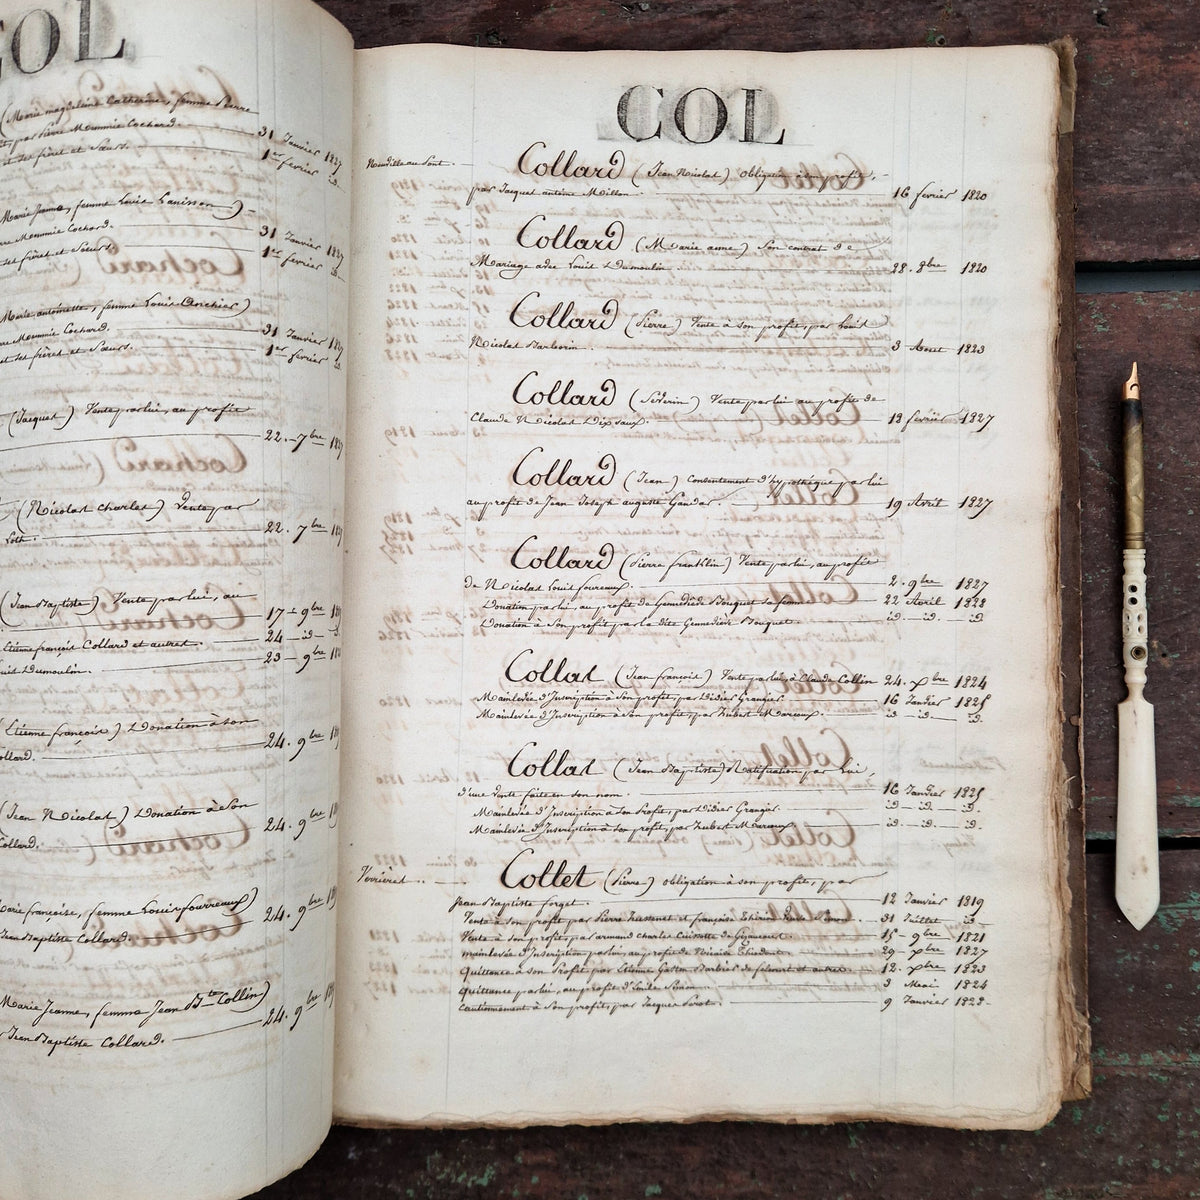 COL
(Marie magdelaine Catherine, femme Pierre
par Pierre Memmie Cochard.
et ses frères et Sœurs.
31 Janvier 1827
1er fevrier id.
Marie Jeanne, femme Louis Hanisson)
Memmie Cochard.
ses frères et Sœurs.
31 Janvier 1827
1er fevrier id.
Marie antoinette, femme Louis Anchier)
Memmie Cochard.
et ses frères et Sœurs.
31 Janvier
1er fevrier id.
(Jacques) Vente par lui, au profit
22. 7bre
(Nicolas Charles) Vente par
22. 7bre
(Jean Baptiste) Vente par lui, au
17 9bre
Etienne françois Collard et autres. 24 id
Louis Dumoulin. 23 9bre
(Etienne françois) Donation à son
Collard. 24. 9bre
(Jean Nicolas) Donation à Son
Collard. 24. 9bre
Marie françoise, femme Louis fourreaux)
Jean Baptiste Collard. 24. 9bre
Marie Jeanne, femme Jean Bte Collin)
Jean Baptiste Collard. 24. 9bre
COL
Collard (Jean Nicolas) Obligation à son profit,
par Jacques antoine Millon. 16 fevrier 1820
Collard (Marie anne) Son contrat de
Mariage avec Louis Dumoulin 28. 8bre 1820
Collard (Pierre) Vente à son profit, par Louis
Nicolas Barborin. 3 Aout 1823
Collard (Séverin) Vente par lui au profit de
Claude Nicolas Dixsaux. 13 fevrier 1827
Collard (Jean) Consentement d'hypothèque par lui
au profit de Jean Joseph auguste Gaudar. 19 Avril 1827
Collard (Pierre franklin) Vente par lui, au profit
de Nicolas Louis foureaux. 2. 9bre 1827
Donation par lui, au profit de Geneviève Bouquet sa femme 22 Avril 1828
Donation à Son profit par la dite Geneviève Bouquet. id. id. id.
Collas (Jean françois) Vente par lui, à Claude Collin 24. xbre 1824
Mainlevée d'Inscription à Son profit, par Didier Grangier. 16 Janvier 1825
Mainlevée d'Inscription à Son profit, par Hubert Marcoux. id id id.
Collas (Jean Baptiste) Ratification par Lui,
d'une Vente faite en son nom. 16 Janvier 1825
Mainlevée d'Inscription à Son Profit, par Didier Grangier. id id id.
Mainlevée d'Inscription à Son profit, par Hubert Marcoux. id. id. id.
Verrieres
Collet (Pierre) obligation à son profit, par
Jean Baptiste forget. 12 Janvier 1819
Vente à Son profit par Pierre et françoise 31 Juillet id
Vente à Son profit, par armand Charles 15 9bre 1821
mainlevée d'Inscription par lui, au profit de 29 xbre 1827
Quittance à Son Profit par Etienne Gaston et autres 12. xbre 1823
Quittance par lui, au profit d' 3 Mai 1824
Cautionnement à Son profit, par Jacques 9 Janvier 1828